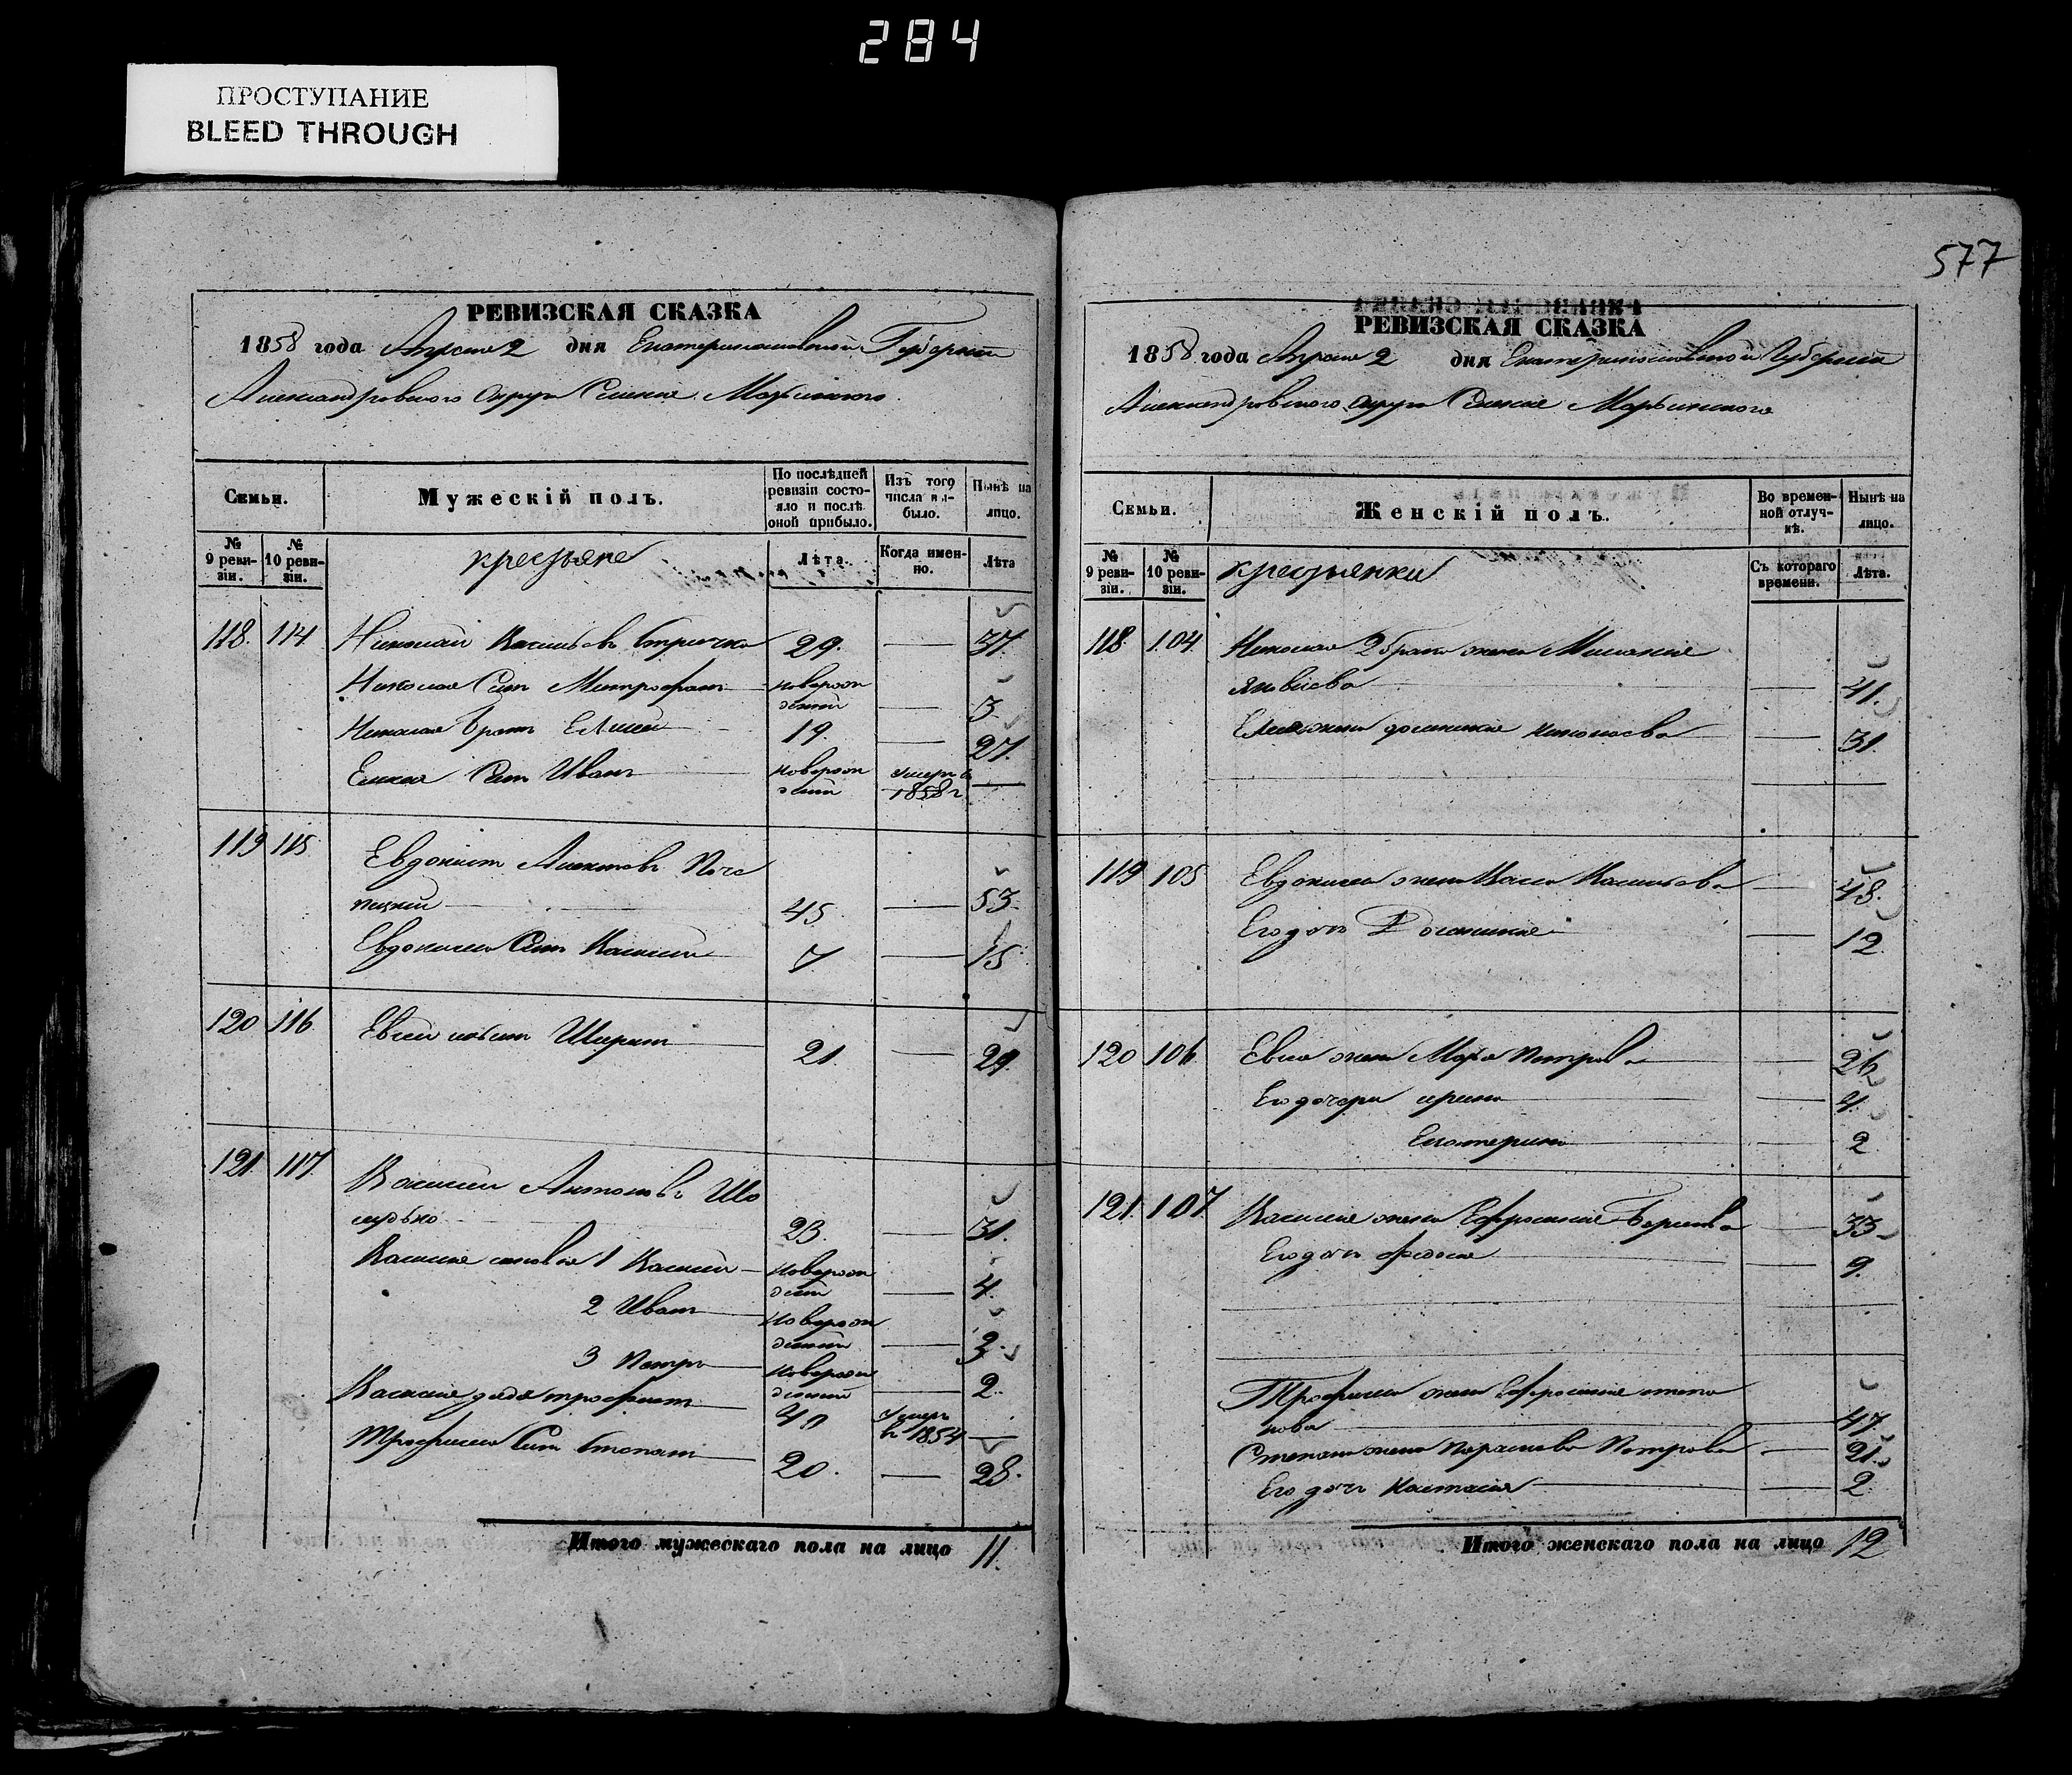 284
ПРОСТУПАНИЕ
BLEED THROUGH
577
РЕВИЗСКАЯ СКАЗКА
1858 года Апреля 2 дня Екатеринославской Губернии
Александровского округа Селения Марьинского
Семьи.
Мужескій полъ.
По послѣдней ревизіи состояло и послѣ оной прибыло.
Изъ того числа выбыло.
Нынѣ на лицо.
№ 9 ревизіи.
№ 10 ревизіи.
крестьяне
Лѣта.
Когда именно.
Лѣта
118. 114 Николай Васильевъ 29. — 37.
Николая Сынъ Митрофанъ новорожденный — 3
Николая братъ Елисей 19. — 27.
Елисея Сынъ Иванъ новорожденный умеръ 1858 г —
119 115
Евдокимъ
45 — 53.
Евдокима Сынъ Василий 7 — 15
120 116 21. — 29.
121. 117. Василий Антоновъ
23. — 31.
Василия сыновья 1 Василий новорожденный — 4.
2 Иванъ новорожденный — 3.
3 Петръ новорожденный — 2.
Василия дядя Трофимъ 40 умеръ въ 1854 —
Трофима Сынъ Степанъ 20. — 28.
Итого мужескаго пола на лицо 11.
РЕВИЗСКАЯ СКАЗКА
1858 года Апреля 2 дня Екатеринославской Губернии
Александровского округа Селения Марьинского
Семьи.
Женскій полъ.
Во временной отлучкѣ.
Нынѣ на лицо.
№ 9 ревизіи.
№ 10 ревизіи.
крестьянки
Съ котораго времени.
Лѣта.
118. 104. Николая 2 брака жена Мелания
Яковлева — 41.
жена Николаева — 31
—
119 105 Евдокима жена Васильева — 48.
Его дочь Домникия — 12.
120 106. жена Петрова — 26
Его дочери — 4.
Екатерина — 2
121. 107. Василия жена Ефросиния — 33
Его дочь Федосия — 9.
Трофима жена Ефросиния
— 47.
Степана жена Параскева Петрова — 21.
Его дочь Настасия — 2
Итого женскаго пола на лицо 12